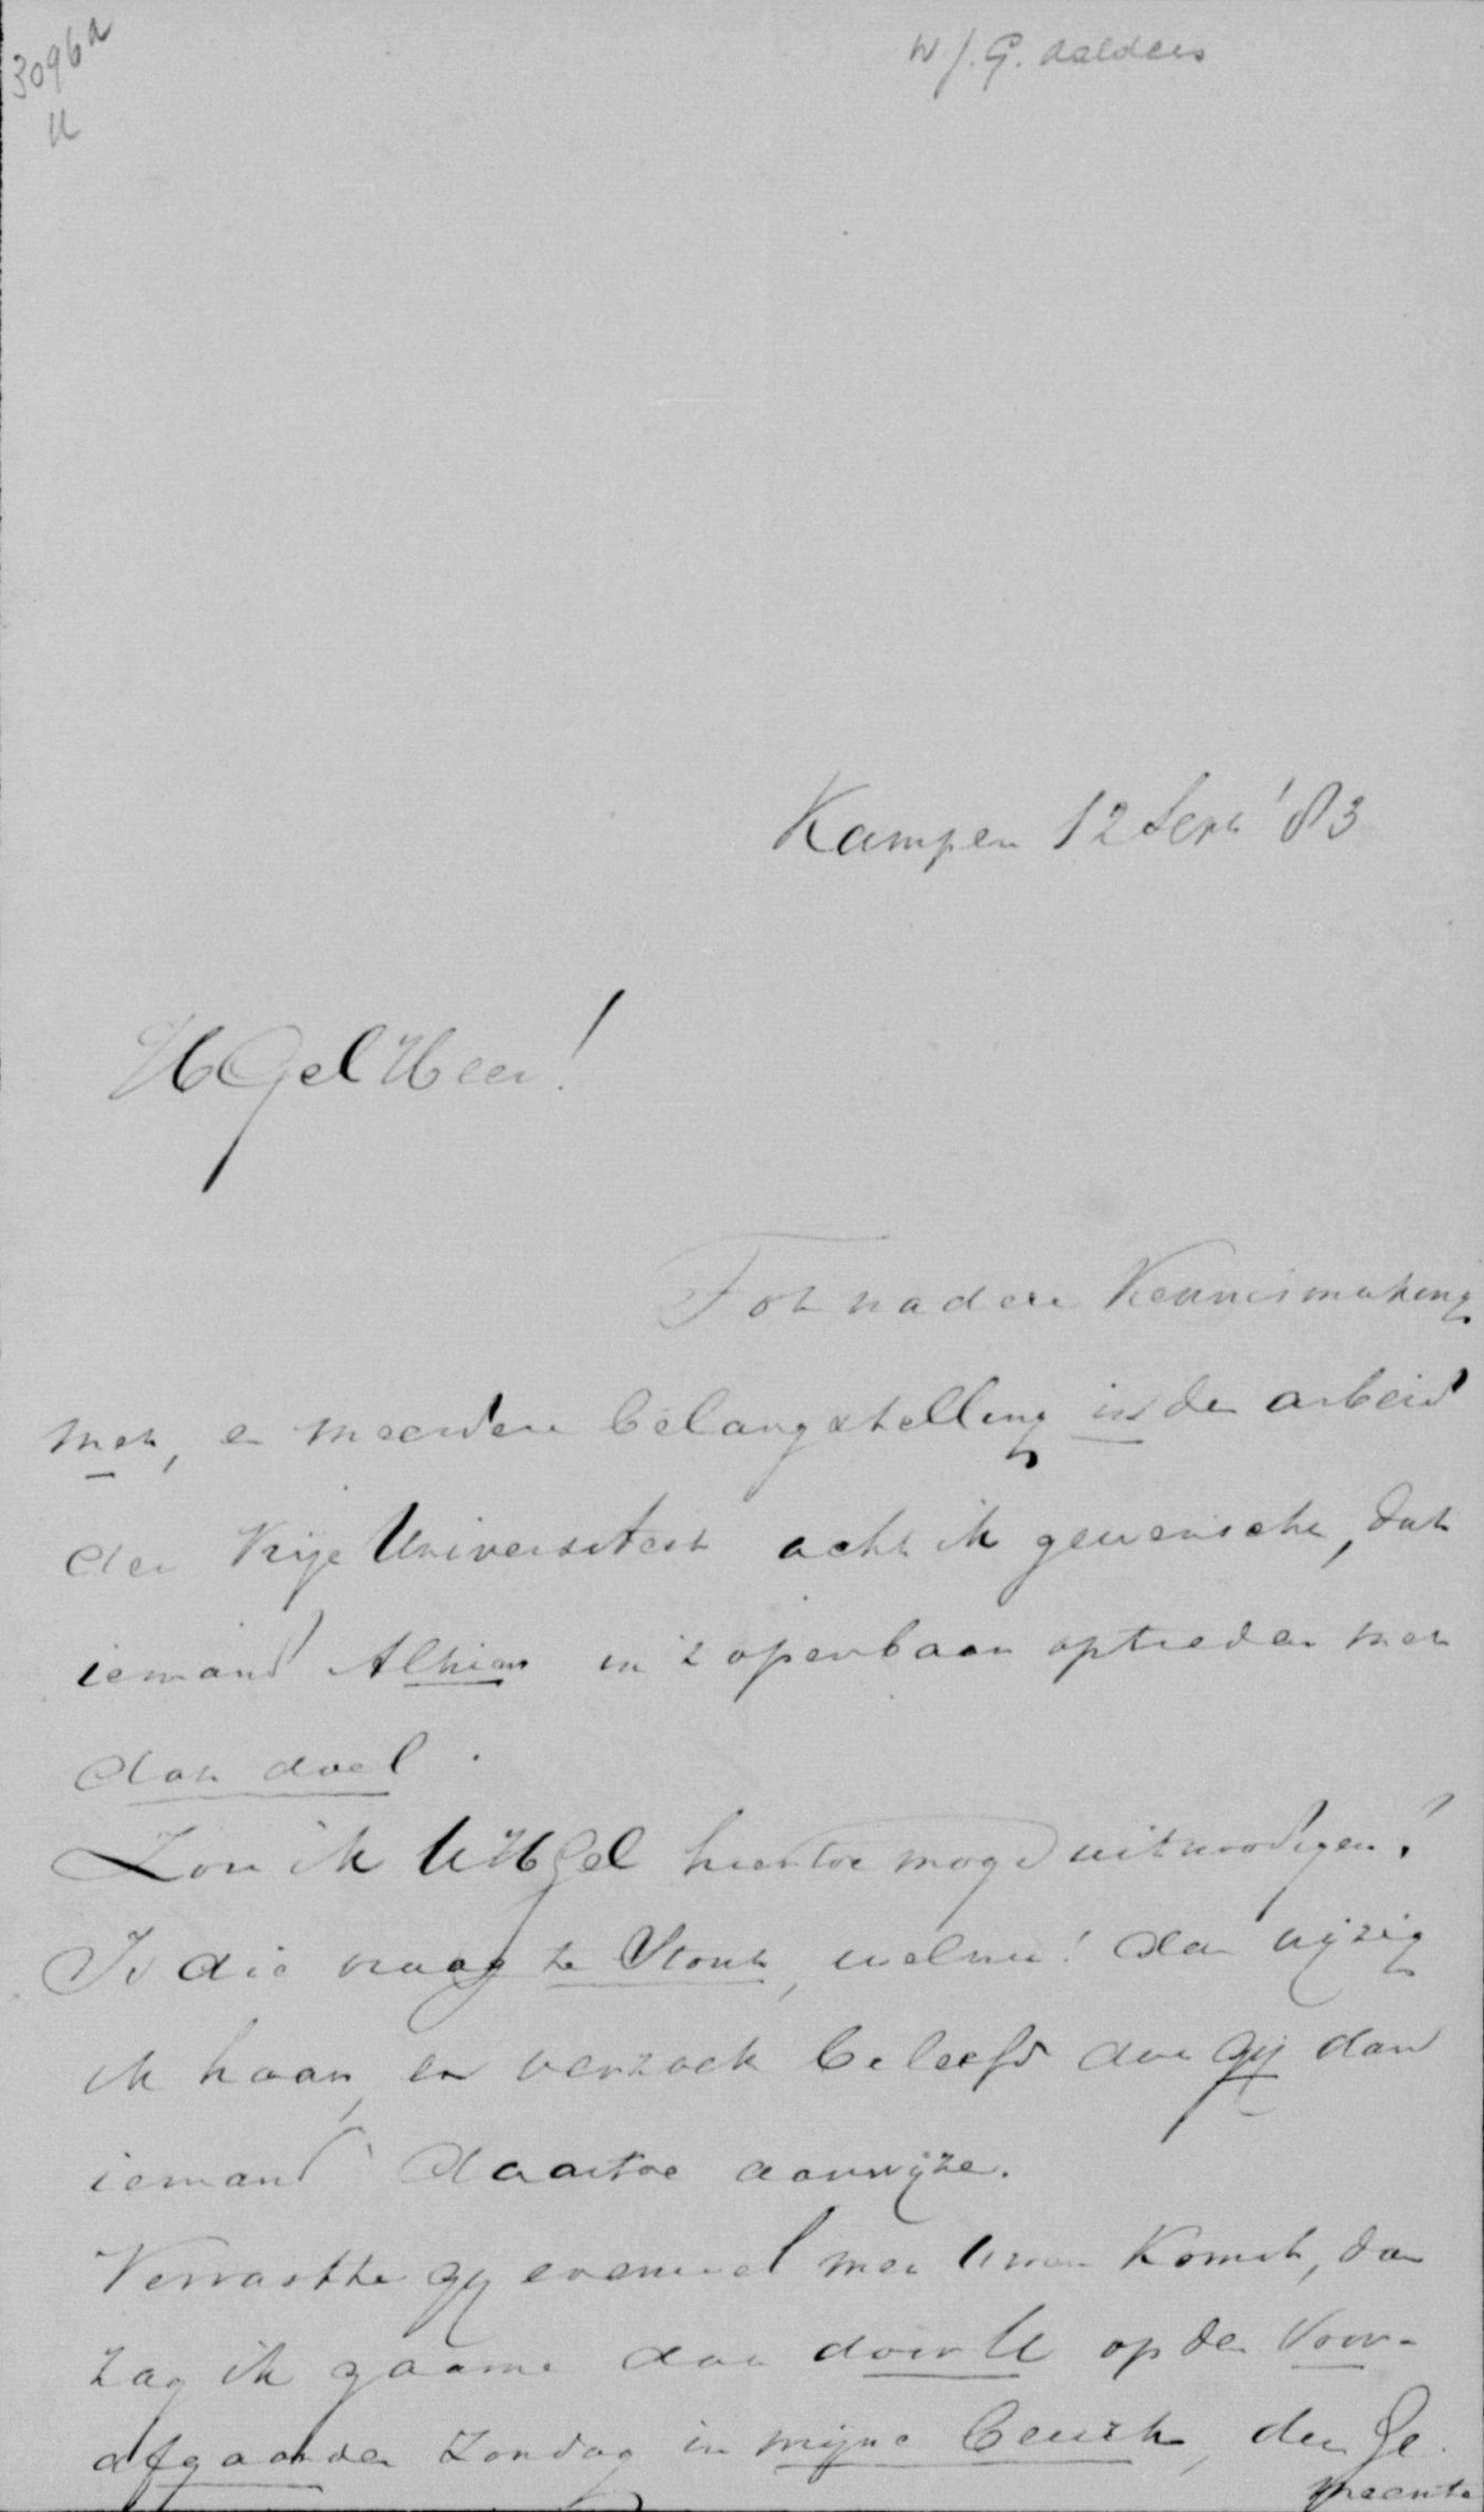 3096a
U
W J. G. Aalders
Kampen 12 Sept '83
HGel Heer!
Tot nadere Kennismaking
met, en meerdere belangstelling in den arbeid
der Vrije Universiteit acht ik gewenscht, dat
iemand Alhier in 't openbaar optreden met
dat doel.
Zou ik UHGel hiertoe mogen uitnoodigen?
Is die vraag te stout, welnu! dan wijzig
ik haar, en verzoek beleefd dat gij dan
iemand daartoe aanwijze.
Verrastte gij evenwel met Uwen Komst, dan
zag ik gaarne dat door U op den Voor-
afgaanden Zondag in mijne beurt, der Ge
meente